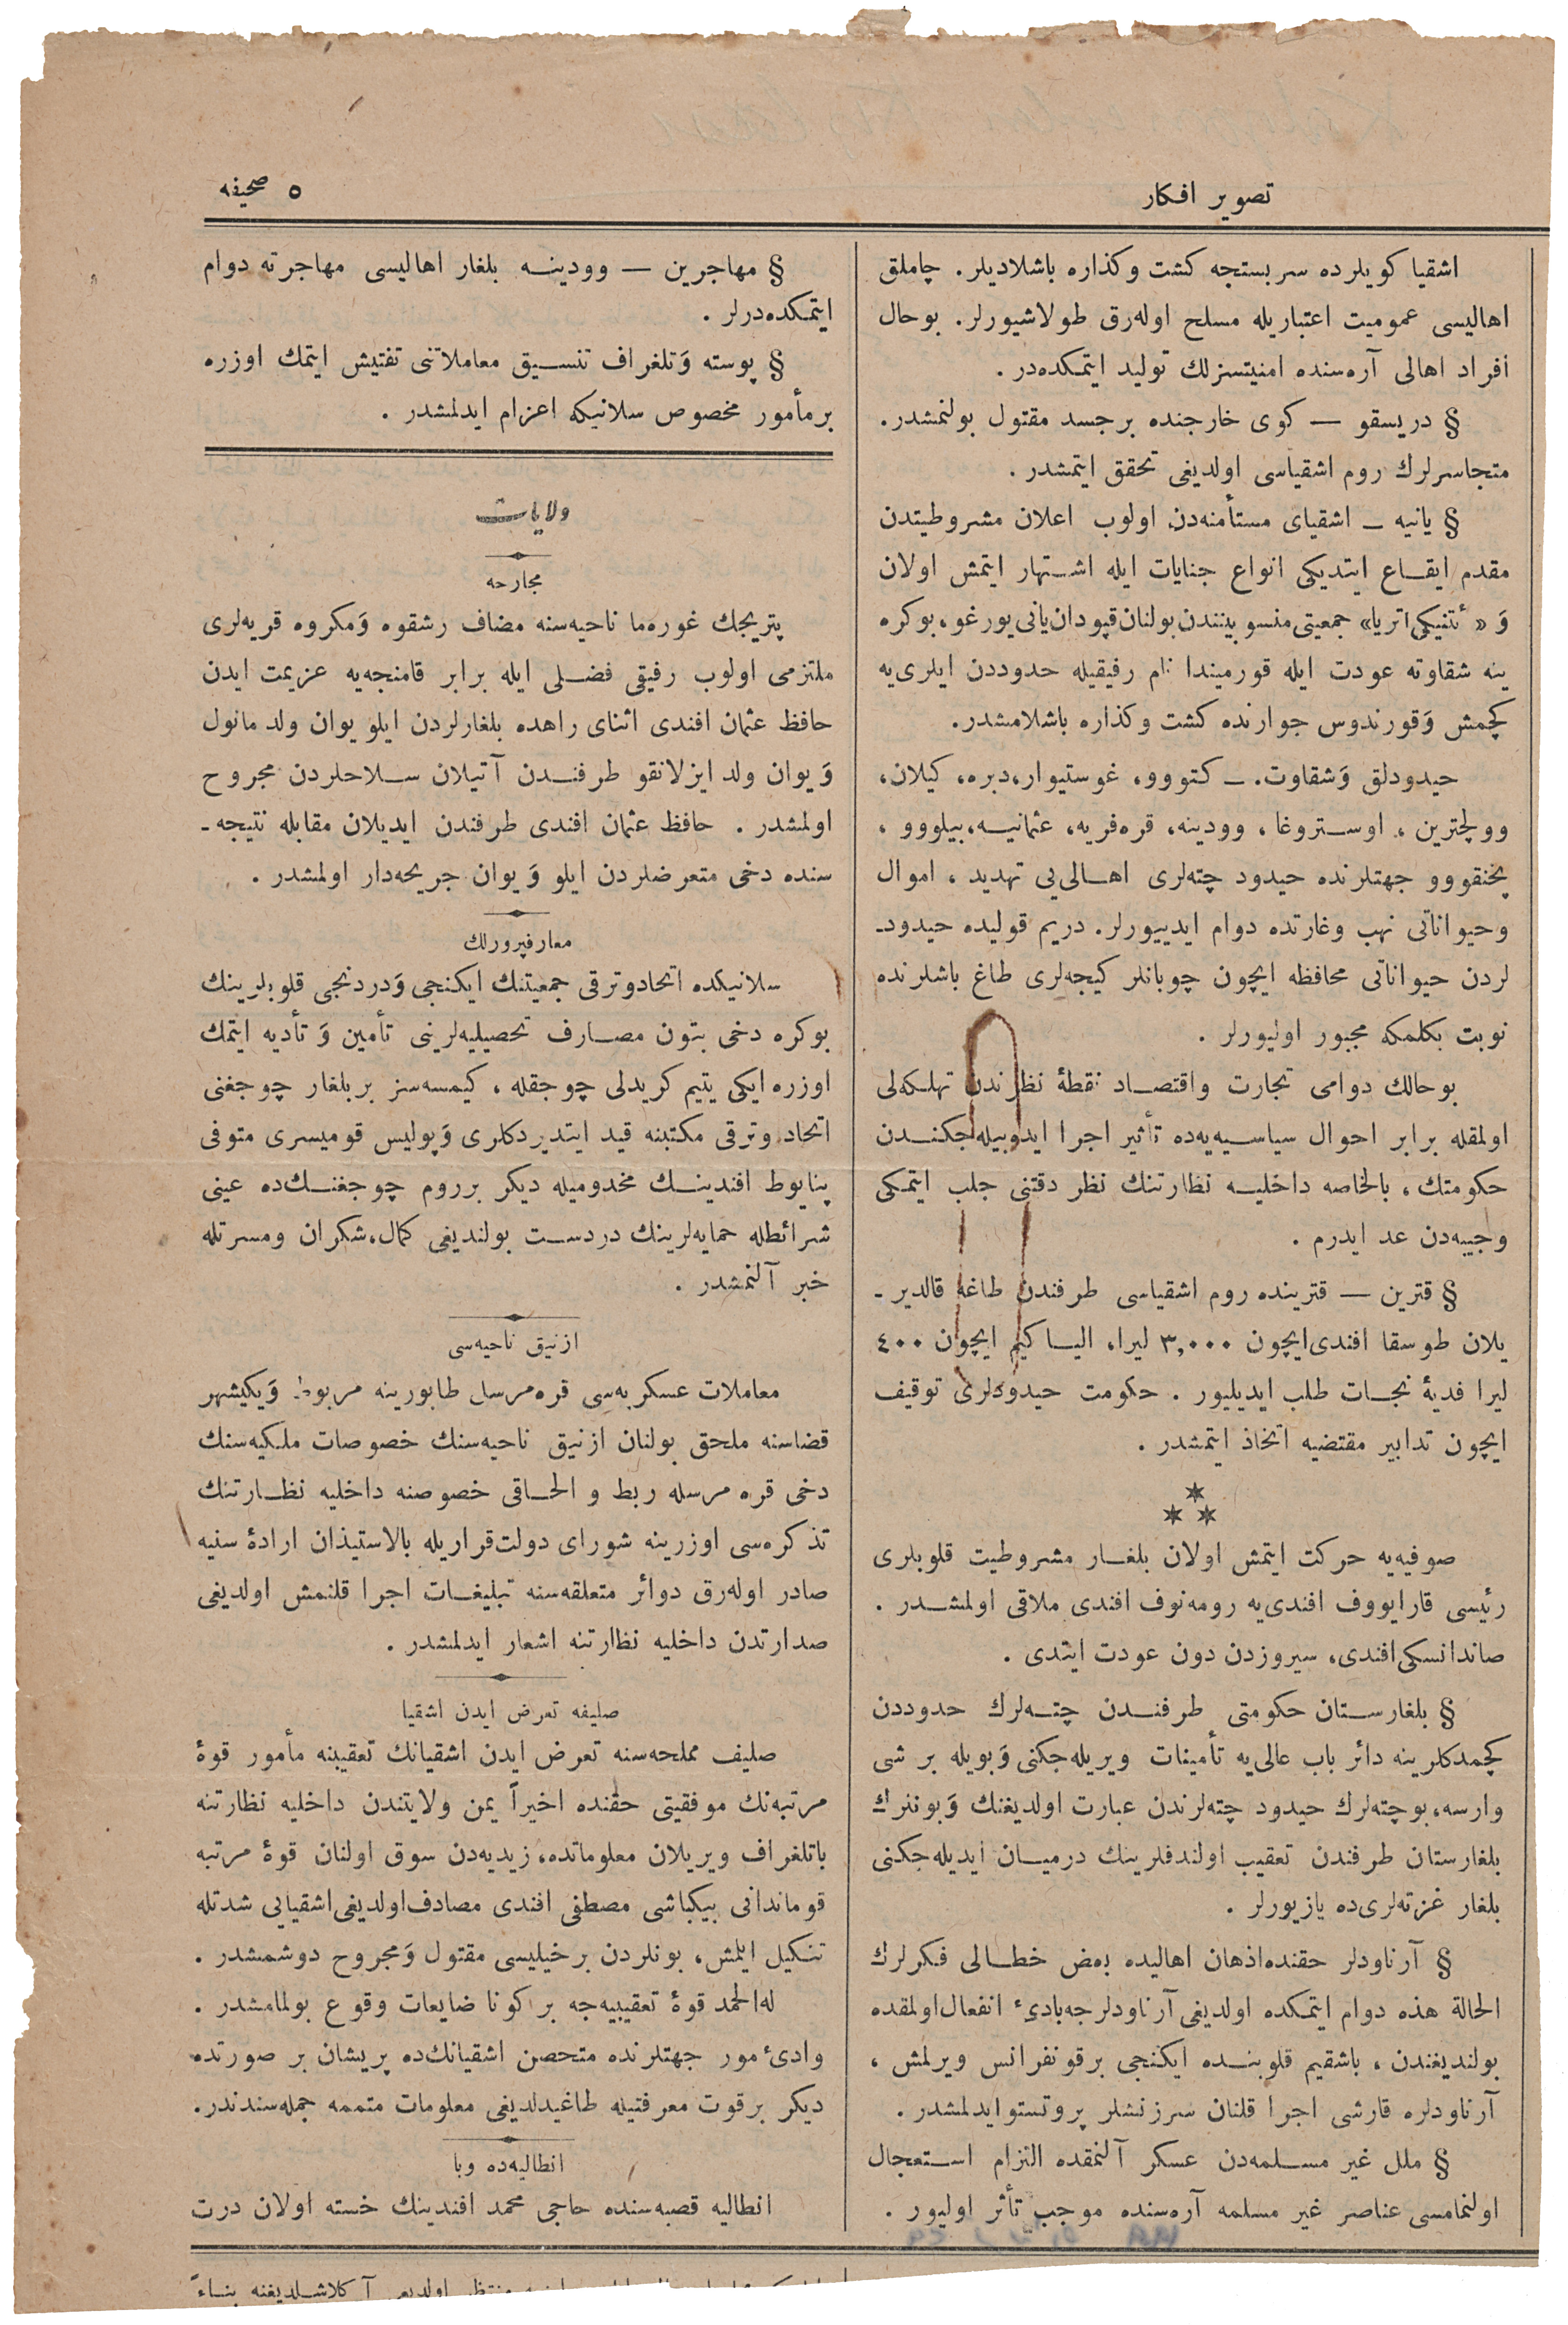 تصوير افكار
٥ صحيفه
اشقيا كويلرده سربستجه كشت وكذاره باشلاديلر. چاملق
اهاليسى عموميت اعتباريله مسلح اوله‌رق طولاشيورلر. بوحال
افراد اهالى آره‌سنده امنيتسزلك توليد ايتمكده‌در.
§ دريسقو — كوى خارجنده برجسد مقتول بولنمشدر.
متجاسرلرك روم اشقياسى اولديغى تحقق ايتمشدر.
§ يانيه — اشقياى مستأمنه‌دن اولوب اعلان مشروطيتدن
مقدم ايقاع ايتديكى انواع جنايات ايله اشتهار ايتمش اولان
وَ « ئتنيكى اتريا» جمعيتى منسوبيتندن بولنان قپودان يانى يورغو، بوكره
ينه شقاوته عودت ايله قورميندا نام رفيقيله حدوددن ايلرى‌يه
كچمش وَقورندوس جوارنده كشت وكذاره باشلامشدر.
حيدودلق وَشقاوت. — كتووو، غوستيوار، دبره، كيلان،
وولچترين، اوستروغا، وودينه، قره‌فريه، عثمانيه، بيلووو،
پخنقووو جهتلرنده حيدود چته‌لرى اهالى‌يى تهديد، اموال
وحيواناتى نهب وغارتده دوام ايدييورلر. دريم قوليده حيدود-
لردن حيواناتى محافظه ايچون چوبانلر كيجه‌لرى طاغ باشلرنده
نوبت بكلمكه مجبور اوليورلر.
بوحالك دوامى تجارت واقتصاد نقطهٔ نظرندن تهلكه‌لى
اولمقله برابر احوال سياسيه‌يه‌ده تأثير اجرا ايدوبيله‌جكندن
حكومتك، بالخاصه داخليه نظارتنك نظر دقتنى جلب ايتمكى
وجيبه‌دن عد ايدرم.
§ قترين — قترينده روم اشقياسى طرفندن طاغه قالدير-
يلان طوسقا افندى ايچون ٣,٠٠٠ ليرا، الياكيم ايچون ٤٠٠
ليرا فديهٔ نجات طلب ايديليور. حكومت حيدودلرى توقيف
ايچون تدابير مقتضيه اتخاذ ايتمشدر.
صوفيه‌يه حركت ايتمش اولان بلغار مشروطيت قلوبلرى
رئيسى قارايووف افندى‌يه رومه‌نوف افندى ملاقى اولمشدر.
صاندانسكى افندى، سيروزدن دون عودت ايتدى.
§ بلغارستان حكومتى طرفندن چته‌لرك حدوددن
كچمدكلرينه دائر باب عالى‌يه تأمينات ويريله‌جكنى وَبويله بر شى
وارسه، بوچته‌لرك حيدود چته‌لرندن عبارت اولديغنك وَبونلرك
بلغارستان طرفندن تعقيب اولندقلرينك درميان ايديله‌جكنى
بلغار غزته‌لرى‌ده يازيورلر.
§ آرناودلر حقنده اذهان اهاليده بعض خطالى فكرلرك
الحالة هذه دوام ايتمكده اولديغى آرناودلرجه بادئ انفعال اولمقده
بولنديغندن، باشقيم قلوبنده ايكنجى برقونفرانس ويرلمش،
آرناودلره قارشى اجرا قلنان سرزنشلر پروتستو ايدلمشدر.
§ ملل غير مسلمه‌دن عسكر آلنمقده التزام استعجال
اولنمامسى عناصر غير مسلمه آره‌سنده موجب تأثر اوليور.
§ مهاجرين — وودينه بلغار اهاليسى مهاجرته دوام
ايتمكده‌درلر.
§ پوسته وَتلغراف تنسيق معاملاتنى تفتيش ايتمك اوزره
برمأمور مخصوص سلانيكه اعزام ايدلمشدر.
ولايات
مجارحه
پتريجك غوره‌ما ناحيه‌سنه مضاف رشقوه وَمكروه قريه‌لرى
ملتزمى اولوب رفيقى فضلى ايله برابر قامنجه‌يه عزيمت ايدن
حافظ عثمان افندى اثناى راهده بلغارلردن ايلو يوان ولد مانول
وَيوان ولد ايزلانقو طرفندن آتيلان سلاحلردن مجروح
اولمشدر. حافظ عثمان افندى طرفندن ايديلان مقابله نتيجه-
سنده دخى متعرضلردن ايلو وَيوان جريحه‌دار اولمشدر.
معارفپرورلك
سلانيكده اتحادوترقى جمعيتنك ايكنجى وَدردنجى قلوبلرينك
بوكره دخى بتون مصارف تحصيليه‌لرينى تأمين وَتأديه ايتمك
اوزره ايكى يتيم كريدلى چوجقله، كيمسه‌سز بر بلغار چوجغنى
اتحاد وترقى مكتبنه قيد ايتديردكلرى وَپوليس قوميسرى متوفى
پنايوط افندينك مخدوميله ديكر برروم چوجغنك‌ده عينى
شرائطله حمايه‌لرينك دردست بولنديغى كمال شكران ومسرتله
خبر آلنمشدر.
ازنيق ناحيه‌سى
معاملات عسكريه‌سى قره‌مرسل طابورينه مربوط وَيكيشهر
قضاسنه ملحق بولنان ازنيق ناحيه‌سنك خصوصات ملكيه‌سنك
دخى قره مرسله ربط و الحاقى خصوصنه داخليه نظارتنك
تذكره‌سى اوزرينه شوراى دولت قراريله بالاستيذان ارادهٔ سنيه
صادر اوله‌رق دوائر متعلقه‌سنه تبليغات اجرا قلنمش اولديغى
صدارتدن داخليه نظارتنه اشعار ايدلمشدر.
صليفه تعرض ايدن اشقيا
صليف مملحه‌سنه تعرض ايدن اشقيانك تعقيبنه مأمور قوهٔ
مرتبه‌نك موفقيتى حقنده اخيراً يمن ولايتندن داخليه نظارتنه
باتلغراف ويريلان معلوماتده، زيديه‌دن سوق اولنان قوهٔ مرتبه
قوماندانى بيكباشى مصطفى افندى مصادف اولديغى اشقيايى شدتله
تنكيل ايلمش، بونلردن برخيليسى مقتول وَمجروح دوشمشدر.
له‌الحمد قوهٔ تعقيبيه‌جه بر كونا ضايعات وقوع بولمامشدر.
وادئ مور جهتلرنده متحصن اشقيانك‌ده پريشان بر صورتده
ديكر برقوت معرفتيله طاغيدلديغى معلومات متممه جمله‌سندندر.
انطاليه‌ده وبا
انطاليه قصبه‌سنده حاجى محمد افندينك خسته اولان درت
منتظر اولديغى آكلاشلديغنه بناءً